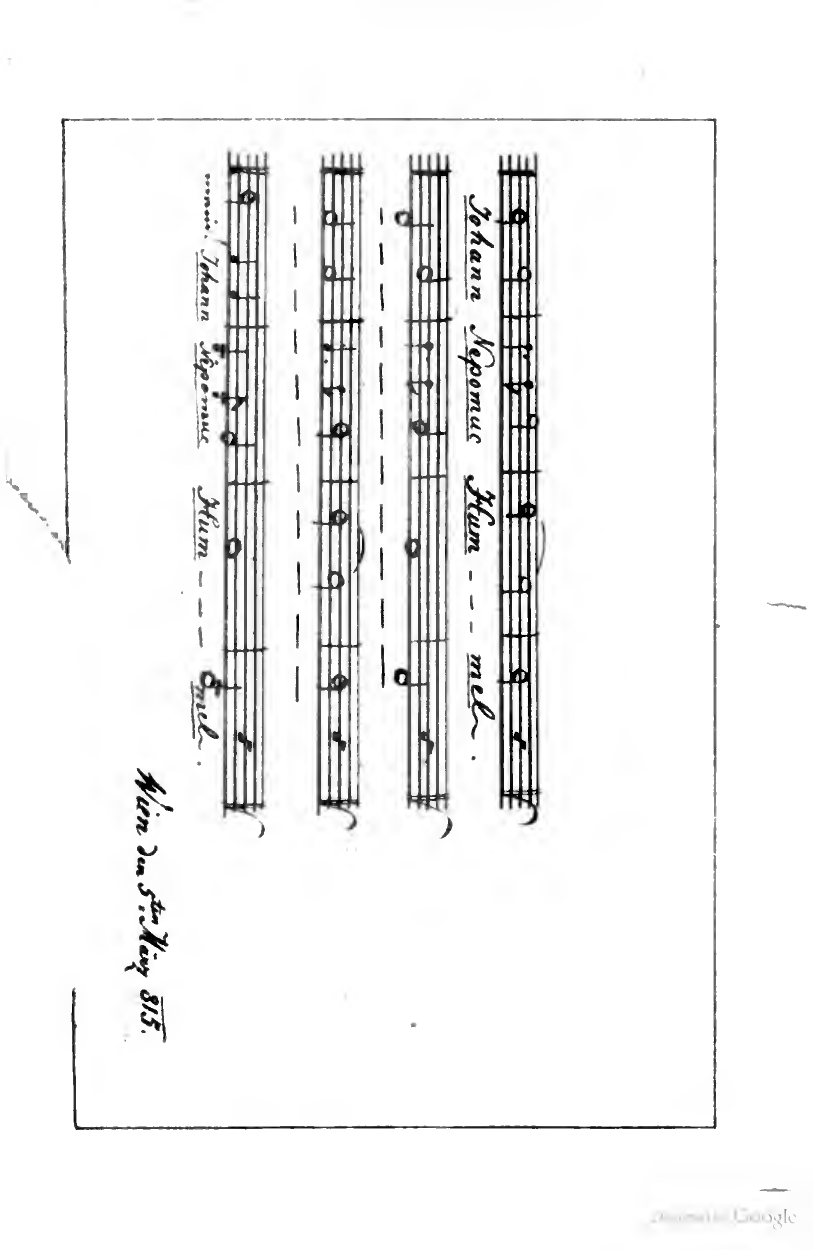 Johann Nepomuc Hum - - - mel.
Johann Nepomuc Hum - - - mel.
Wien den 5ten März 815.
Google